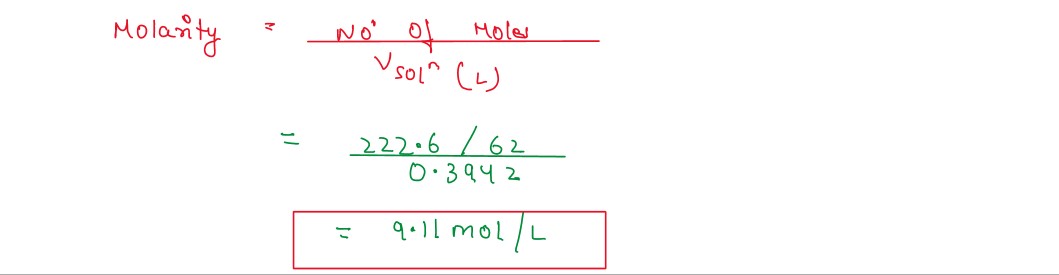 Molarity = No' Of Moles
Vsolⁿ (L)
= 222.6 / 62
0.3942
= 9.11 mol/L